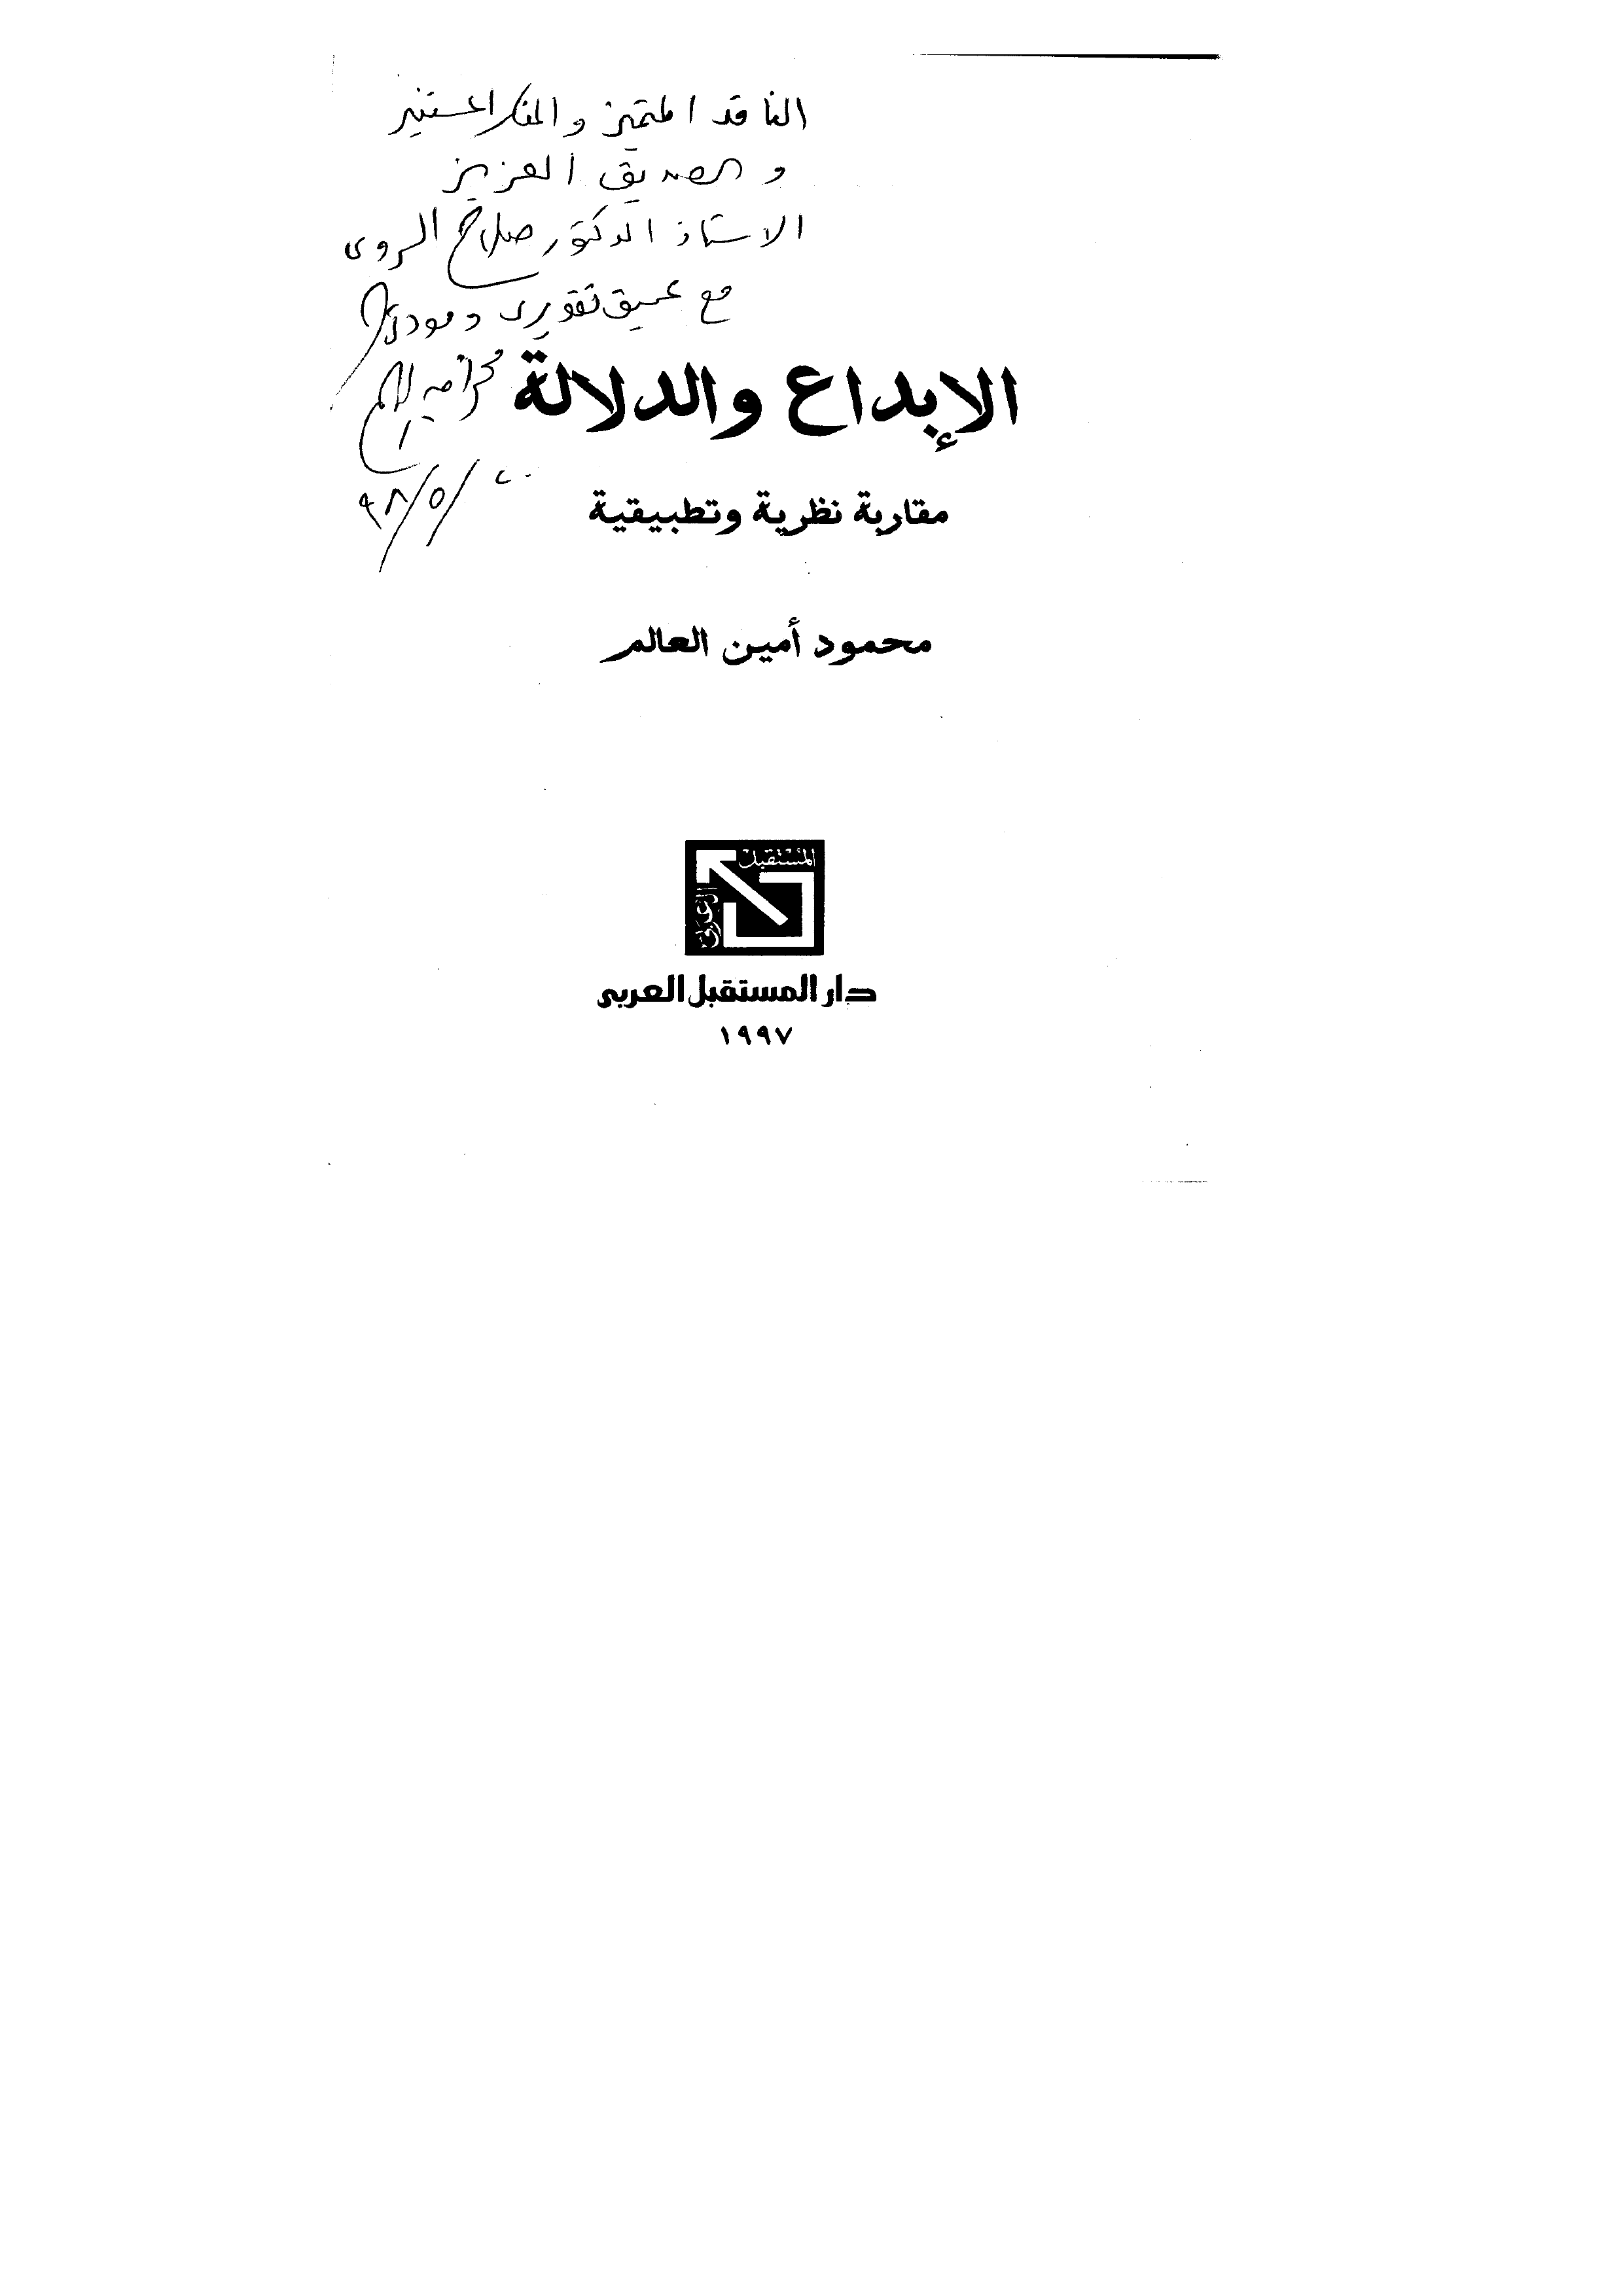 الناقد المتميز والمفكر المستنير
والصديق العزيز
الاستاذ الدكتور صلاح السروى
مع عميق تقديرى ومودتى
محمود أمين العالم
٢٠/٥/٩٨
الإبداع والدلالة
مقاربة نظرية وتطبيقية
محمود أمين العالم
المستقبل
العربى
دار المستقبل العربى
١٩٩٧